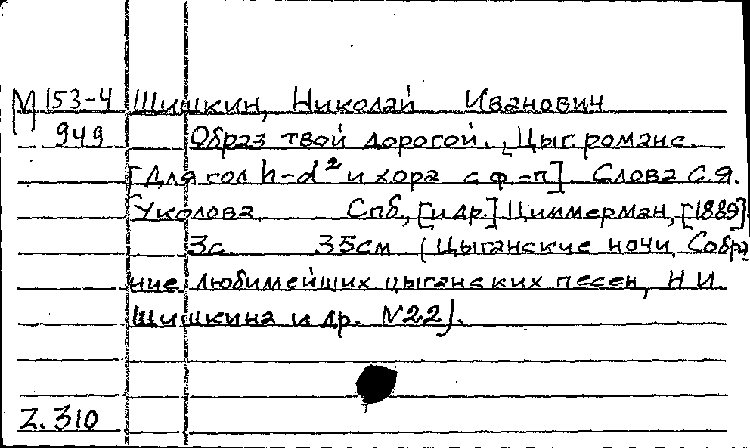 М 153-4 Шишкин, Николай Иванович
949 Образ твой дорогой. Цыг. романс.
[Для гол h-d² и хора с ф-п] Слова С.Я.
Уколова. Спб, [и др.] Циммерман, [1889].
3с. 35см (Цыганские ночи. Собра
ние любимейших цыганских песен, Н.И.
Шишкина и др. N22).
Z. 310